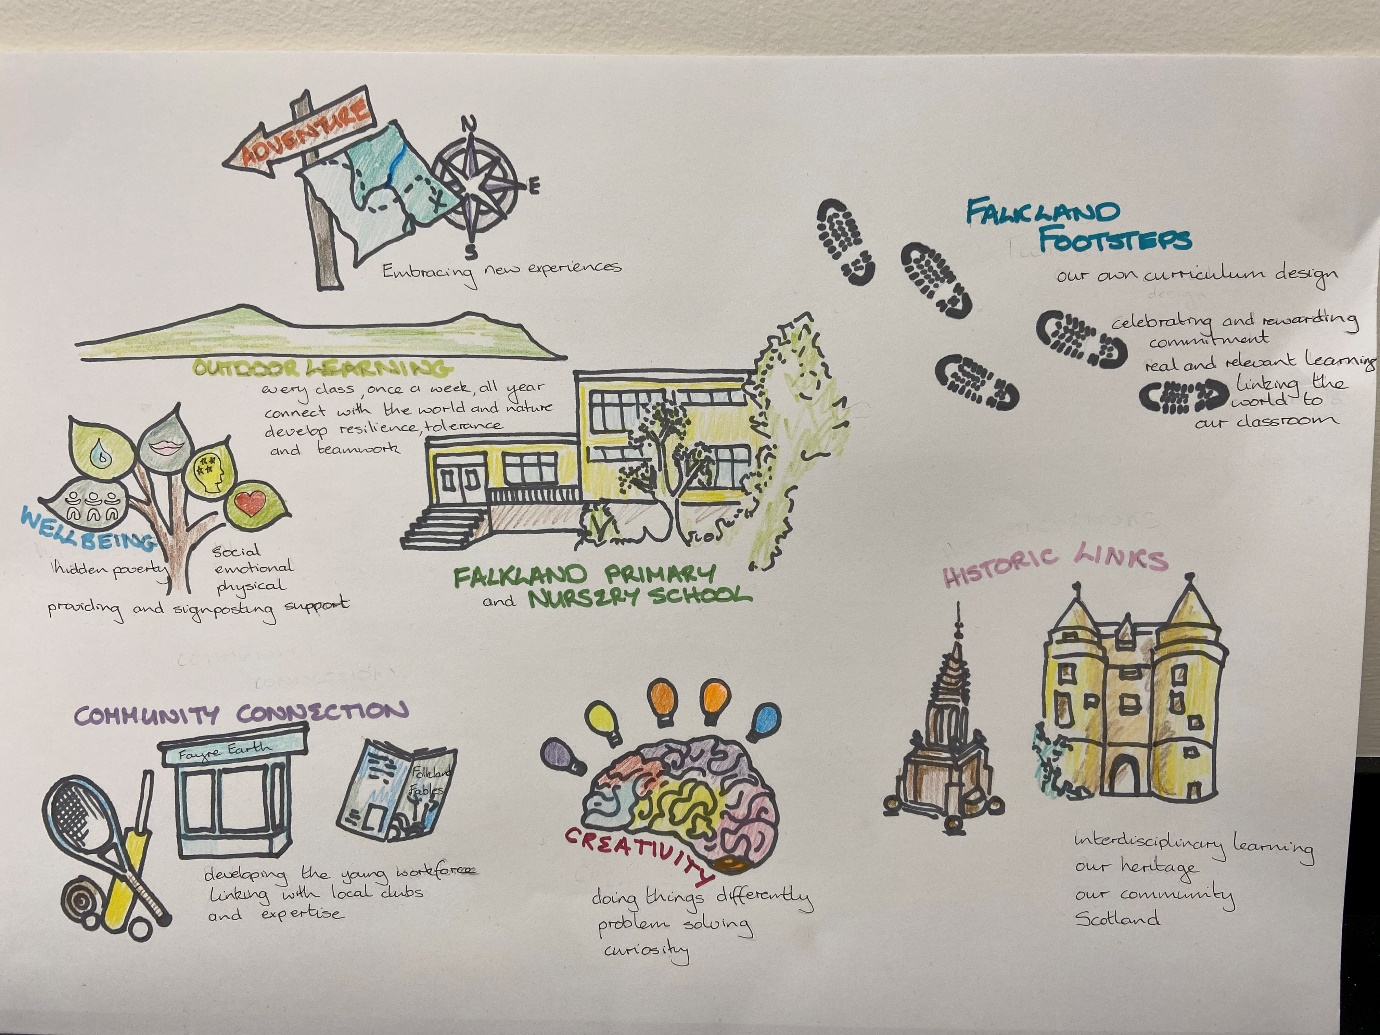 ADVENTURE
N
E
S
Embracing new experiences
FALKLAND
FOOTSTEPS
our own curriculum design
celebrating and rewarding
commitment
real and relevant learning
linking the
world to
our classroom
OUTDOOR LEARNING
every class, once a week, all year
connect with the world and nature
develop resilience, tolerance
and teamwork
WELLBEING
hidden poverty
social
emotional
physical
providing and signposting support
FALKLAND PRIMARY
and NURSERY SCHOOL
HISTORIC LINKS
interdisciplinary learning
our heritage
our community
Scotland
COMMUNITY CONNECTION
Fayre Earth
Falkland
Fables
developing the young workforce
linking with local clubs
and expertise
CREATIVITY
doing things differently
problem solving
curiosity